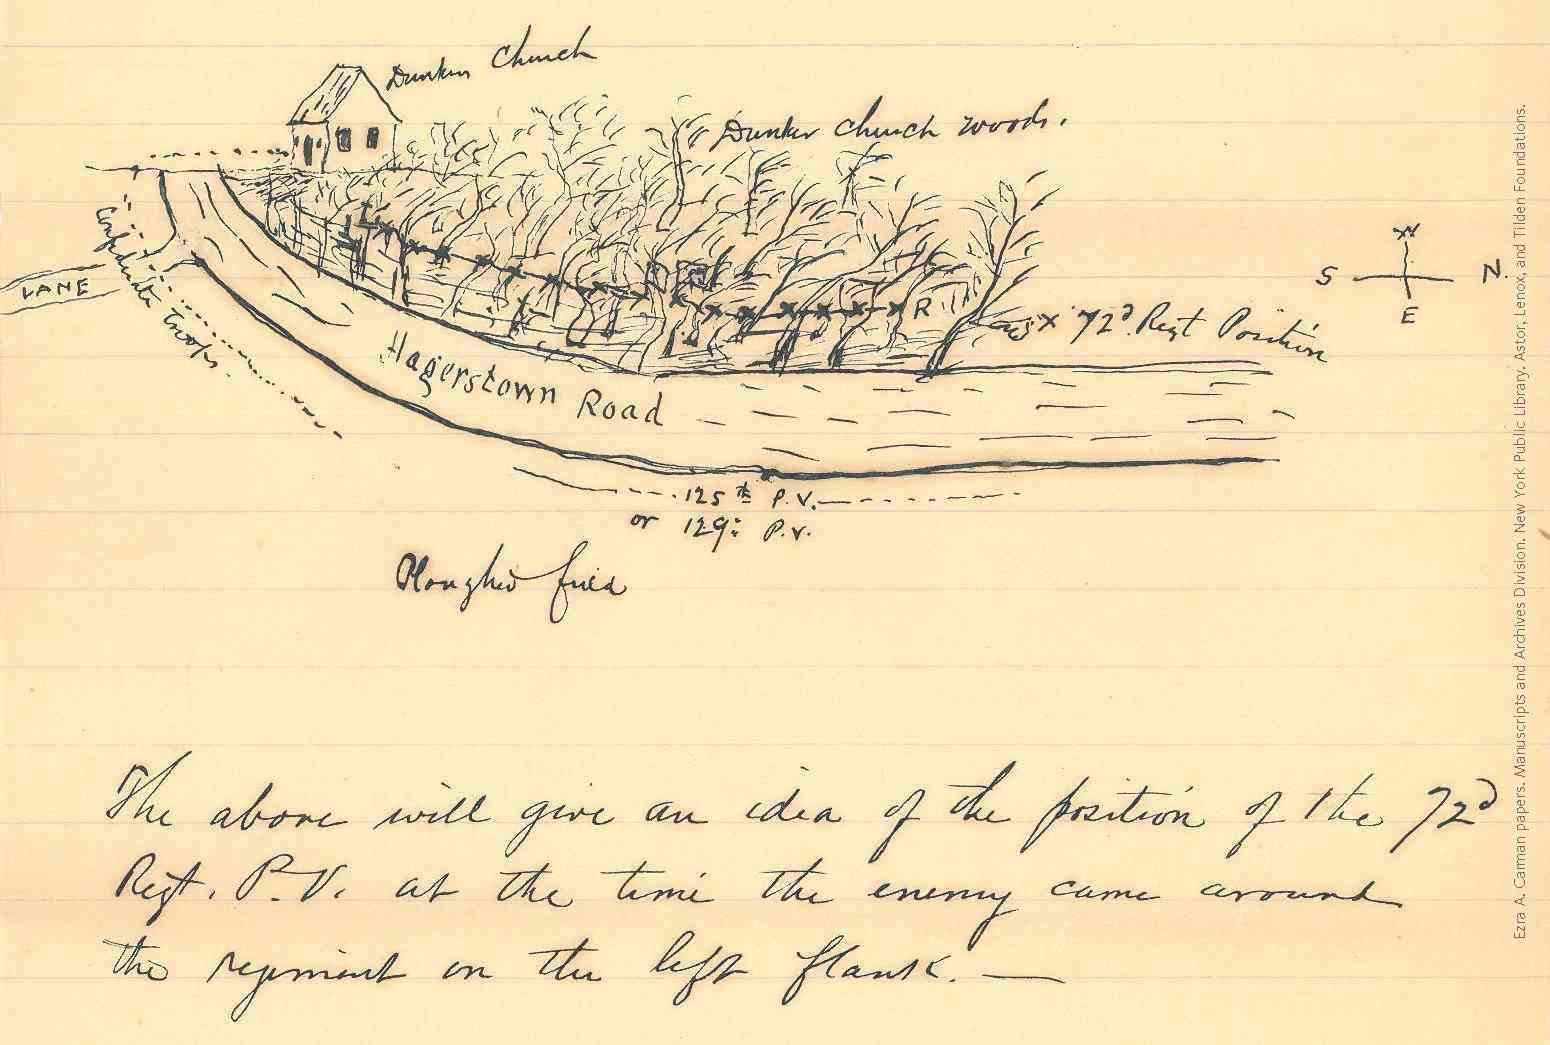 Dunker Church
Dunker Church woods.
Confederate troops.
LANE
L
R
W
S N.
E
x 72d Regt Position
Hagerstown Road
125th P.V.
or 129th P.V.
Ploughed field
The above will give an idea of the position of the 72d
Regt. P.V. at the time the enemy came around
the regiment on the left flank. —
Ezra A. Carman papers. Manuscripts and Archives Division. New York Public Library. Astor, Lenox, and Tilden Foundations.